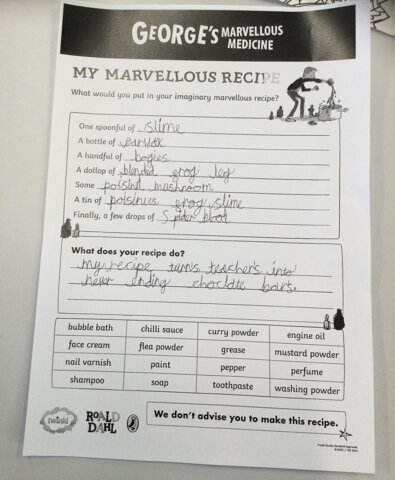 GEORGE'S MARVELLOUS
MEDICINE
MY MARVELLOUS RECIPE
What would you put in your imaginary marvellous recipe?
One spoonful of slime
A bottle of earwax
A handful of bogies
A dollop of blended frog leg
Some poisind mushroom
A tin of poisinus frog slime
Finally, a few drops of Spider blood
What does your recipe do?
my recipe turns teacher's into
never ending choclate bars.
bubble bath chilli sauce curry powder engine oil
face cream flea powder grease mustard powder
nail varnish paint pepper perfume
shampoo soap toothpaste washing powder
twinkl ROALD DAHL We don't advise you to make this recipe.